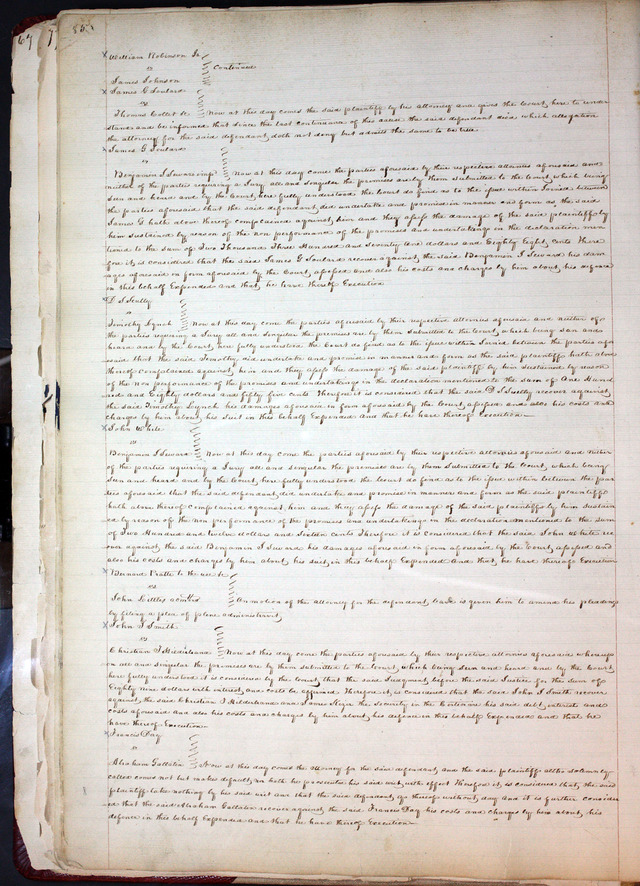 67
85
x William Robinson Jr
vs
Continued
James Johnson
x James G Soulard
vs
Thomas Collet &c Now at this day comes the said plaintiff by his attorney and gives the Court here to under
stand and be informed that since the last continuance of this cause the said defendant died which allegation
the attorney for the said defendant doth not deny but admits the same to be true
x James G Soulard
vs
Benjamin I Seward imp Now at this day come the parties aforesaid by their respective attornies aforesaid and
neither of the parties requiring a Jury all and singular the premises are by them Submitted to the Court which being
Seen and heard and by the Court here fully understood the Court do find as to the issue within Joined between
the parties aforesaid that the said defendant did undertake and promise in manner and form as the said
James G hath above thereof complained against him and they assess the damage of the said plaintiff by
him Sustained by reason of the non performance of the promises and undertakings in the declaration men
tioned to the sum of Two Thousand Three Hundred and Seventy one dollars and Eighty Eight Cents There
fore it is considered that the said James G Soulard recover against the said Benjamin I Seward his dam
ages aforesaid in form aforesaid by the Court assessed and also his costs and charges by him about his
in this behalf Expended and that he have thereof Execution
D I Scully
vs
Timothy Lynch Now at this day come the parties aforesaid by their respective attornies aforesaid and neither of
the parties requiring a Jury all and singular the premises are by them submitted to the Court which being seen and
heard and by the Court here fully understood the Court do find as to the issue within Joined between the parties afore
said that the said Timothy did undertake and promise in manner and form as the said plaintiff hath above
thereof complained against him and they assess the damage of the said plaintiff by him Sustained by reason
of the non performance of the promises and undertakings in the declaration mentioned to the sum of One Hund
red and Eighty dollars and fifty five cents Therefore it is considered that the said D I Scully recover against
the said Timothy Lynch his damages aforesaid in form aforesaid by the Court assessed and also his costs and
charges by him about his Suit in this behalf Expended and that he have thereof Execution
x John White
vs
Benjamin I Seward Now at this day come the parties aforesaid by their respective attornies aforesaid and neither
of the parties requiring a Jury all and singular the premises are by them Submitted to the Court, which being
Seen and heard and by the Court here fully understood the Court do find as to the issue within between the par
ties aforesaid that the said defendant did undertake and promise in manner and form as the said plaintiff
hath above thereof complained against him and they assess the damage of the said plaintiff by him Sustain
ed by reason of the non performance of the promises and undertakings in the declaration mentioned to the sum
of Two Hundred and twelve dollars and Sixteen cents Therefore it is considered that the said John White re
cover against the said Benjamin I Seward his damages aforesaid in form aforesaid by the Court assessed and
also his costs and charges by him about his suit in this behalf Expended And that he have thereof Execution
x Bernard Pratte to the use &c
vs
John Littles admrs On motion of the attorney for the defendant leave is given him to amend his pleading
by filing a plea of plene administravit
x John I Smith
vs
Christian I Hilderbrand Now at this day come the parties aforesaid by their respective attornies aforesaid whereup
on all and singular the premises are by them submitted to the Court, which being Seen and heard and by the Court
here fully understood it is considered by the Court that the said Judgment before the said Justice for the sum of
Eighty nine dollars with interest and costs be affirmed Therefore it is considered that the said John I Smith recover
against the said Christian I Hilderbrand and James the Security in the his said debt interest and
costs aforesaid and also his costs and charges by him about his defence in this behalf Expended and that he
have thereof Execution
x Francis Day
vs
Abraham Gallatin Now at this day comes the attorney for the said defendant and the said plaintiff altho solemnly
called comes not but makes default nor doth he prosecute his said suit with effect Therefore it is considered that the said
plaintiff take nothing by his said writ and that the said defendant go thereof without day and it is further consider
ed that the said Abraham Gallatin recover against the said Francis Day his costs and charges by him about his
defence in this behalf Expended and that he have thereof Execution